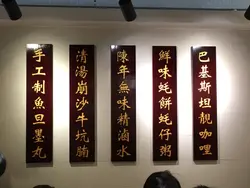 巴基斯坦靚咖喱
鮮味蚝餅蚝仔粥
陳年無味精滷水
清湯崩沙牛坑腩
手工制魚旦墨丸